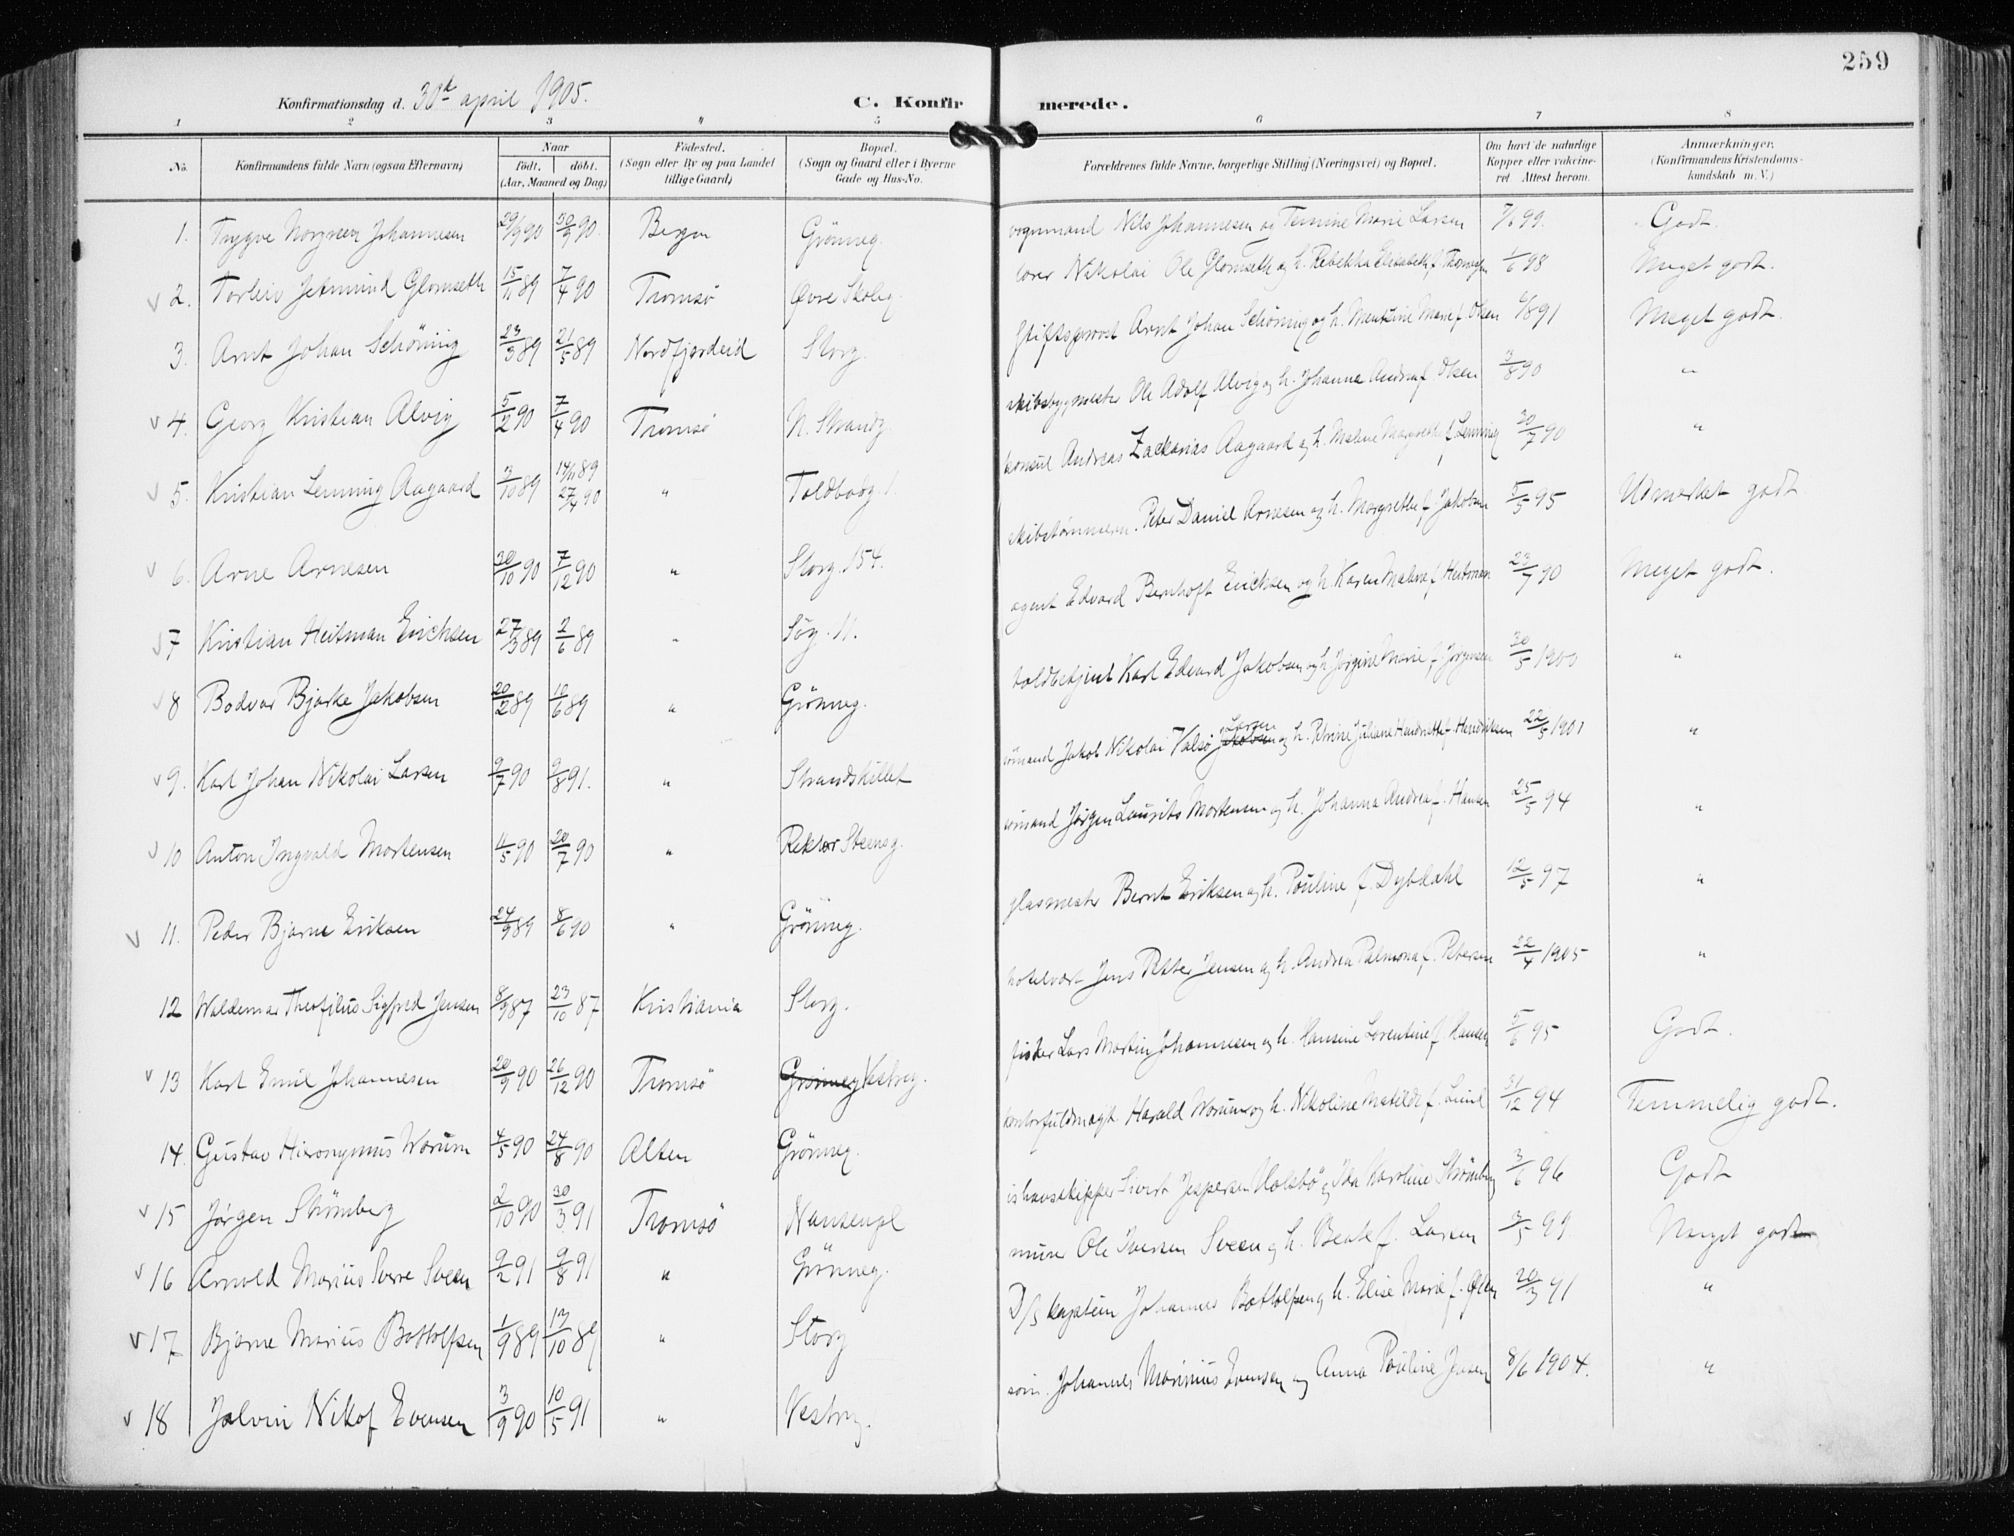 259
Konfirmationsdag d. 30te april 1905.
C. Konfirmerede.
1 2 3 " 5 6 7 8
No. Konfirmandens fulde Navn (ogsaa Efternavn) Naar født, døbt. (Aar, Maaned og Dag) Fødested. (Sogn eller By og paa Landet tillige Gaard) Bopæl. (Sogn og Gaard eller i Byerne Gade og Hus-No. Forældrenes fulde Navne, borgerlige Stilling (Næringsvei) og Bopæl. Om havt de naturlige Kopper eller vakcineret Attest herom. Anmærkninger. (Konfirmandens Kristendomskundskab m. V.)
1. Trygve Norgreen Johannesen 29/9 90 30/9 90. Bergen Grønneg. vognmand Nils Johannesen og Marie Larsen 7/6 99. Godt.
2. Torleiv Jetmund Glomseth 15/11 89 7/4 90 Tromsø Øvre Skoleg. Nikolai Ole Glomseth og h. Rebekka Elisabeth f. 1/6 98 Meget godt.
3. Arnt Johan Schöning 23/3 89 21/5 89 Nordfjordeid Storg. Stiftsprovst Arnt Johan Schöning og h. Marie f. Olsen 6/8 91 Meget godt.
4. Georg Kristian Alvig 5/2 90 7/4 90 Tromsø N. Strandg. skibsbygmester Ole Adolf Alvig og h. Johanna Andrea f. Olsen 3/8 90 "
5. Kristian Lemming Aagaard 3/10 89 14/11 89 27/4 90 " Toldbodg. 1. konsul Andreas Zackarias Aagaard og h. Malene Margrethe f. Lemming 30/7 90 "
6. Arne Arnesen 30/10 90 7/12 90 " Storg. 154. skibstømmerm. Peter Daniel Arnesen og h. Margrethe f. Jakobsen 5/5 95 Udmerket godt
7 Kristian Heitman Erichsen 27/3 89 2/6 89 " Søg. 11. agent Edvard Bernhoft Erichsen og h. Karen f. Heitman 23/7 90 Meget godt.
8 Bodvar Bjarke Jakobsen 20/2 89 10/6 89 " Grönneg. toldbetjent Karl Edvard Jakobsen og h. Jørgine Marie f. Jørgensen 30/5 1900 "
9. Karl Johan Nikolai Larsen 9/7 90 9/8 91. " Strandskillet Jakob Nikolai Valsø Jakobsen Larsen og h. Petrine Juliane Henriette f. Henriksen 22/5 1901 "
10 Anton Ingvald Mortensen 11/5 90 20/7 90 " Rektor Steensg. Jørgen Laurits Mortensen og h. Johanna Andrea f. Hansen 25/5 94 "
11. Peder Bjarne Eriksen 24/9 89 8/6 90 " Grönneg. glasmester Bernt Eriksen og h. Pauline f. Dybdahl 12/5 97 "
12 Waldemar Theofilus Sigfred Jensen 8/9 87 23/10 87 Kristiania Storg. hotelvært Jens Petter Jensen og h. Andrea Palmona f. Petersen 22/4 1905 "
13 Karl Emil Johannesen 20/9 90 26/12 90 Tromsø Grönneg Vestreg. fisker Lars Martin Johannesen og h. Hansine Lorentine f. Hansen 5/6 95 Godt.
14. Gustav Hieronymus Worum 4/5 90 24/8 90 Alten Grönneg. kontorfuldmægt. Harald Worum og h. Nikoline Matilde f. Lund 31/12 94 Temmelig godt.
15 Jørgen Strömberg 2/10 90 30/3 91 Tromsø Nansenpl ishavsskipper Sivert Jespersen Holsbö og Ida Karoline Strömberg 3/6 96 Godt
16 Arnold Marius Sverre Sveen 9/2 91 9/8 91 " Grönneg. murer Ole Iversen Sveen og h. Beate f. Larsen 3/5 99. Meget godt
17 Bjarne Marius Bottolfsen 1/9 89 13/10 89 " Storg D/S kaptein Johannes Bottolfsen og h. Elise Marie f. Olsen 20/3 91 "
18 Jalvin Nikof Evensen 3/9 90 10/5 91 " Vestreg. Johannes Marinius Evensen og Anna Pauline Jensen 8/6 1904. "